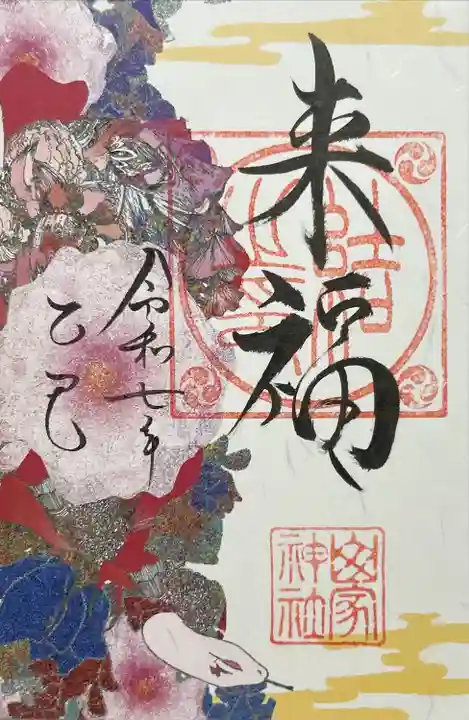 来福
令和七年
乙巳
山家
神社